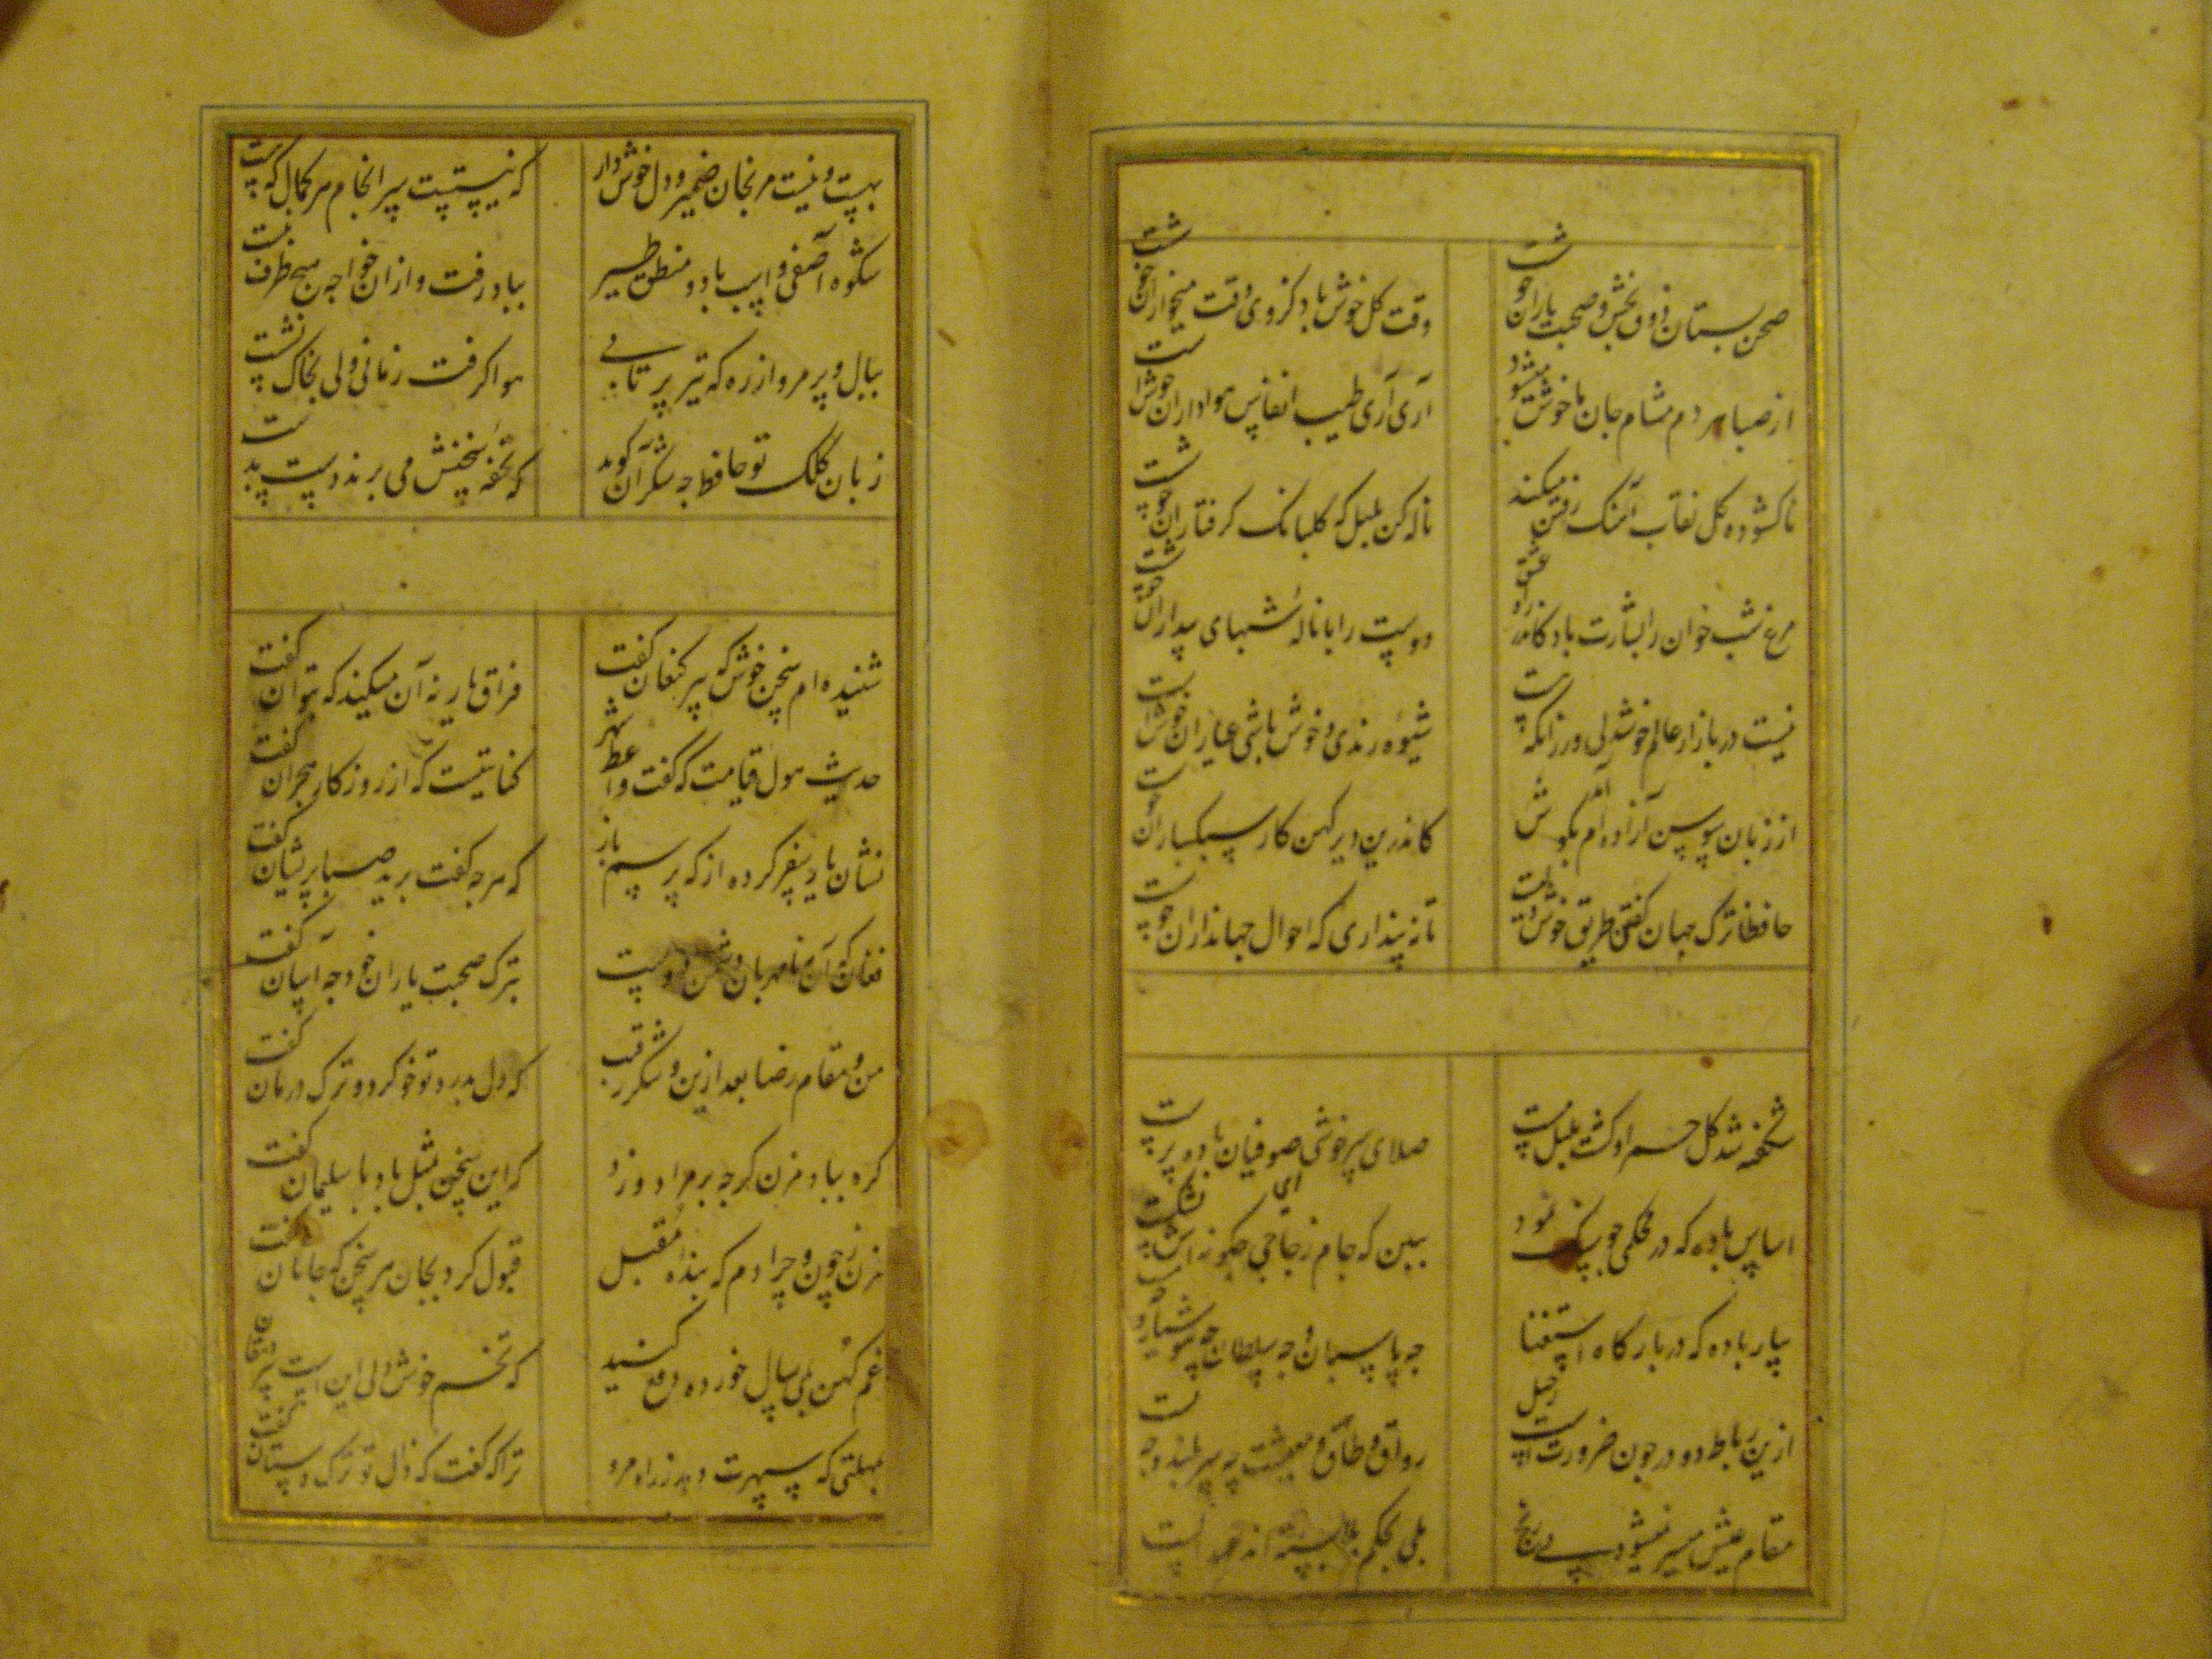 صحن بستان ذوق بخش و صحبت یاران خوشت
وقت کل خوش باد کزوی وقت میخواران خوشت
از صبا هر دم مشام جان ما خوش میشود
آری آری طیب انفاس هواداران خوشست
ناکشوده کل نقاب آهنک رفتن میکند
ناله کن بلبل که کلبانک کرفتاران خوشت
مرغ شب خوان را بشارت باد کاندر راه عشق
دوست را با ناله شبهای بیداران خوشت
نیست در بازار عالم خوشدلی ور زانکه هست
شیوه رندی و خوش باشی عیاران خوشست
از زبان سوسن آزاده ام آمد بکوش
کاندرین دیر کهن کار سبکباران خوشست
حافظا ترک جهان کفتن طریق خوش دلیست
تا نه پنداری که احوال جهانداران خوشست
شکفته شد کل حمرا و کشت بلبل مست
صلای سرخوشی ای صوفیان باده پرست
اساس باده که در محکمی جو سنک نمود
ببین که جام زجاجی جکونه اش بشکست
بیار باده که در بارکاه استغنا
جه پاسبان و جه سلطان جه هوشیار و جه مست
ازین رباط دو در جون ضرورتست رحیل
رواق و طاق معیشت چه سربلند و جه پست
مقام عیش میسر نمیشود بی رنج
بلی بحکم بلا بسته اند عهد الست
بهست و نیست مرنجان ضمیر و دل خوش دار
که نیستیست سرانجام هر کمال که هست
شکوه آصفی و اسب باد و منطق طیر
بباد رفت و ازان خواجه هیچ طرف نبست
ببال و پر مرو از ره که تیر پرتابی
هوا کرفت زمانی ولی بخاک نشست
زبان کلک تو حافظ جه شکر آن کوید
که تحفه سخنش می برند دست بدست
شنیده ام سخن خوش که پیر کنعان کفت
فراق یار نه آن میکند که بتوان کفت
حدیث هول قیامت که کفت واعظ شهر
کنایتیست که از روزکار هجران کفت
نشان یار سفر کرده از که پرسم باز
که هرجه کفت برید صبا پریشان کفت
فغان که آن مه نامهربان دشمن دوست
بترک صحبت یاران خود جه آسان کفت
من و مقام رضا بعد ازین و شکر رقیب
که دل بدرد تو خو کرد و ترک درمان کفت
کره بباد مزن کرجه بر مراد وزد
که این سخن بمثل باد با سلیمان کفت
مزن ز جون و چرا دم که بنده مقبل
قبول کرد بجان هر سخن که جانان کفت
غم کهن بمی سال خورده دفع کنید
که تخم خوش دلی این است پیر دهقان کفت
بمهلتی که سپهرت دهد ز راه مرو
ترا که کفت که زال تو ترک دستان کفت